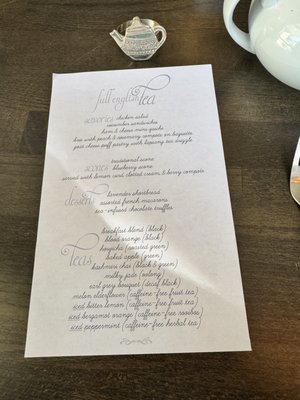 full english tea
savories chicken salad
cucumber sandwiches
ham & cheese mini quiche
brie with peach & rosemary compote on baguette
pear cheese puff pastry with tapang tea drizzle
traditional scone
scones blueberry scone
served with lemon curd, clotted cream, & berry compote
lavender shortbread
desserts assorted french macarons
tea-infused chocolate truffles
Teas breakfast blend (black)
blood orange (black)
houjicha (roasted green)
baked apple (green)
kashmiri chai (black & green)
milky jade (oolong)
earl grey bouquet (decaf black)
melon elderflower (caffeine-free fruit tea)
iced bitter lemon (caffeine-free fruit tea)
iced bergamot orange (caffeine-free rooibos)
iced peppermint (caffeine-free herbal tea)